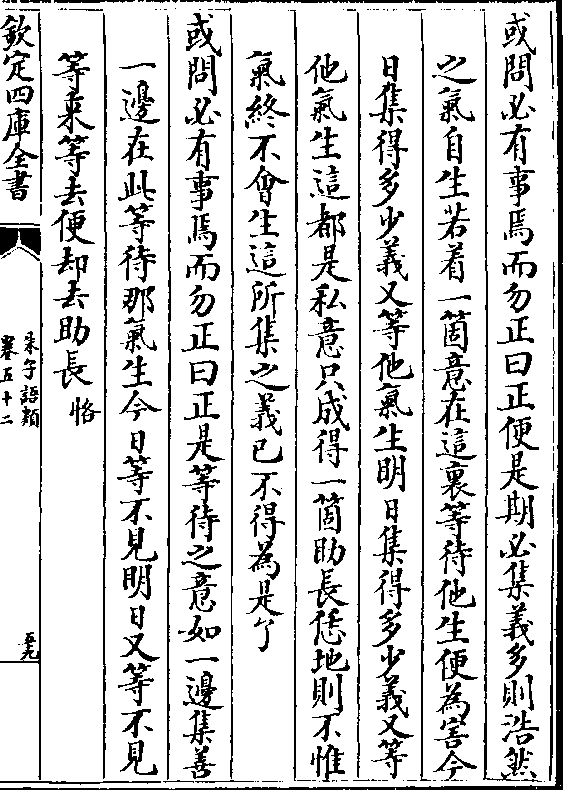 或問必有事焉而勿正曰正便是期必集義多則浩然
之氣自生若着一箇意在這裏等待他生便為害今
日集得多少義又等他氣生明日集得多少義又等
他氣生這都是私意只成得一箇助長恁地則不惟
氣終不會生這所集之義已不得為是了
或問必有事焉而勿正曰正是等待之意如一邊集善
一邊在此等待那氣生今日等不見明日又等不見
等來等去便却去助長 恪
欽定四庫全書
朱子語類
卷五十二
五九